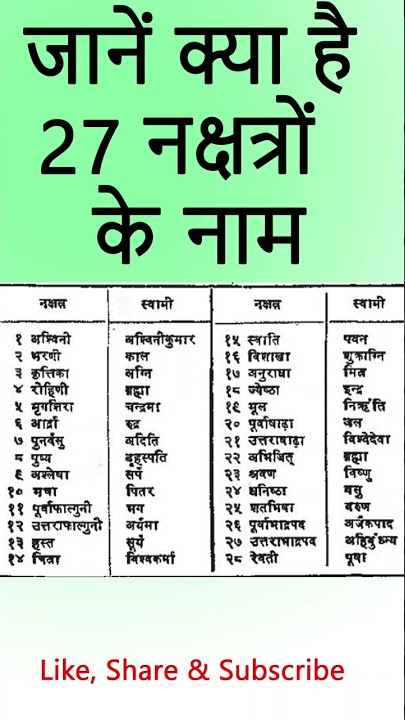 जानें क्या है
27 नक्षत्रों
के नाम
नक्षत्र स्वामी नक्षत्र स्वामी
१ अश्विनी अश्विनीकुमार १५ स्वाति पवन
२ भरणी काल १६ विशाखा शुक्राग्नि
३ कृत्तिका अग्नि १७ अनुराधा मित्र
४ रोहिणी ब्रह्मा १८ ज्येष्ठा इन्द्र
५ मृगशिरा चन्द्रमा १९ मूल निर्ऋति
६ आर्द्रा रुद्र २० पूर्वाषाढ़ा जल
७ पुनर्वसु अदिति २१ उत्तराषाढ़ा विश्वेदेवा
८ पुष्य बृहस्पति २२ अभिजित् ब्रह्मा
९ अश्लेषा सर्प २३ श्रवण विष्णु
१० मघा पितर २४ धनिष्ठा वसु
११ पूर्वाफाल्गुनी भग २५ शतभिषा वरुण
१२ उत्तराफाल्गुनी अर्यमा २६ पूर्वाभाद्रपद अजैकपाद
१३ हस्त सूर्य २७ उत्तराभाद्रपद अहिर्बुध्न्य
१४ चित्रा विश्वकर्मा २८ रेवती पूषा
Like, Share & Subscribe